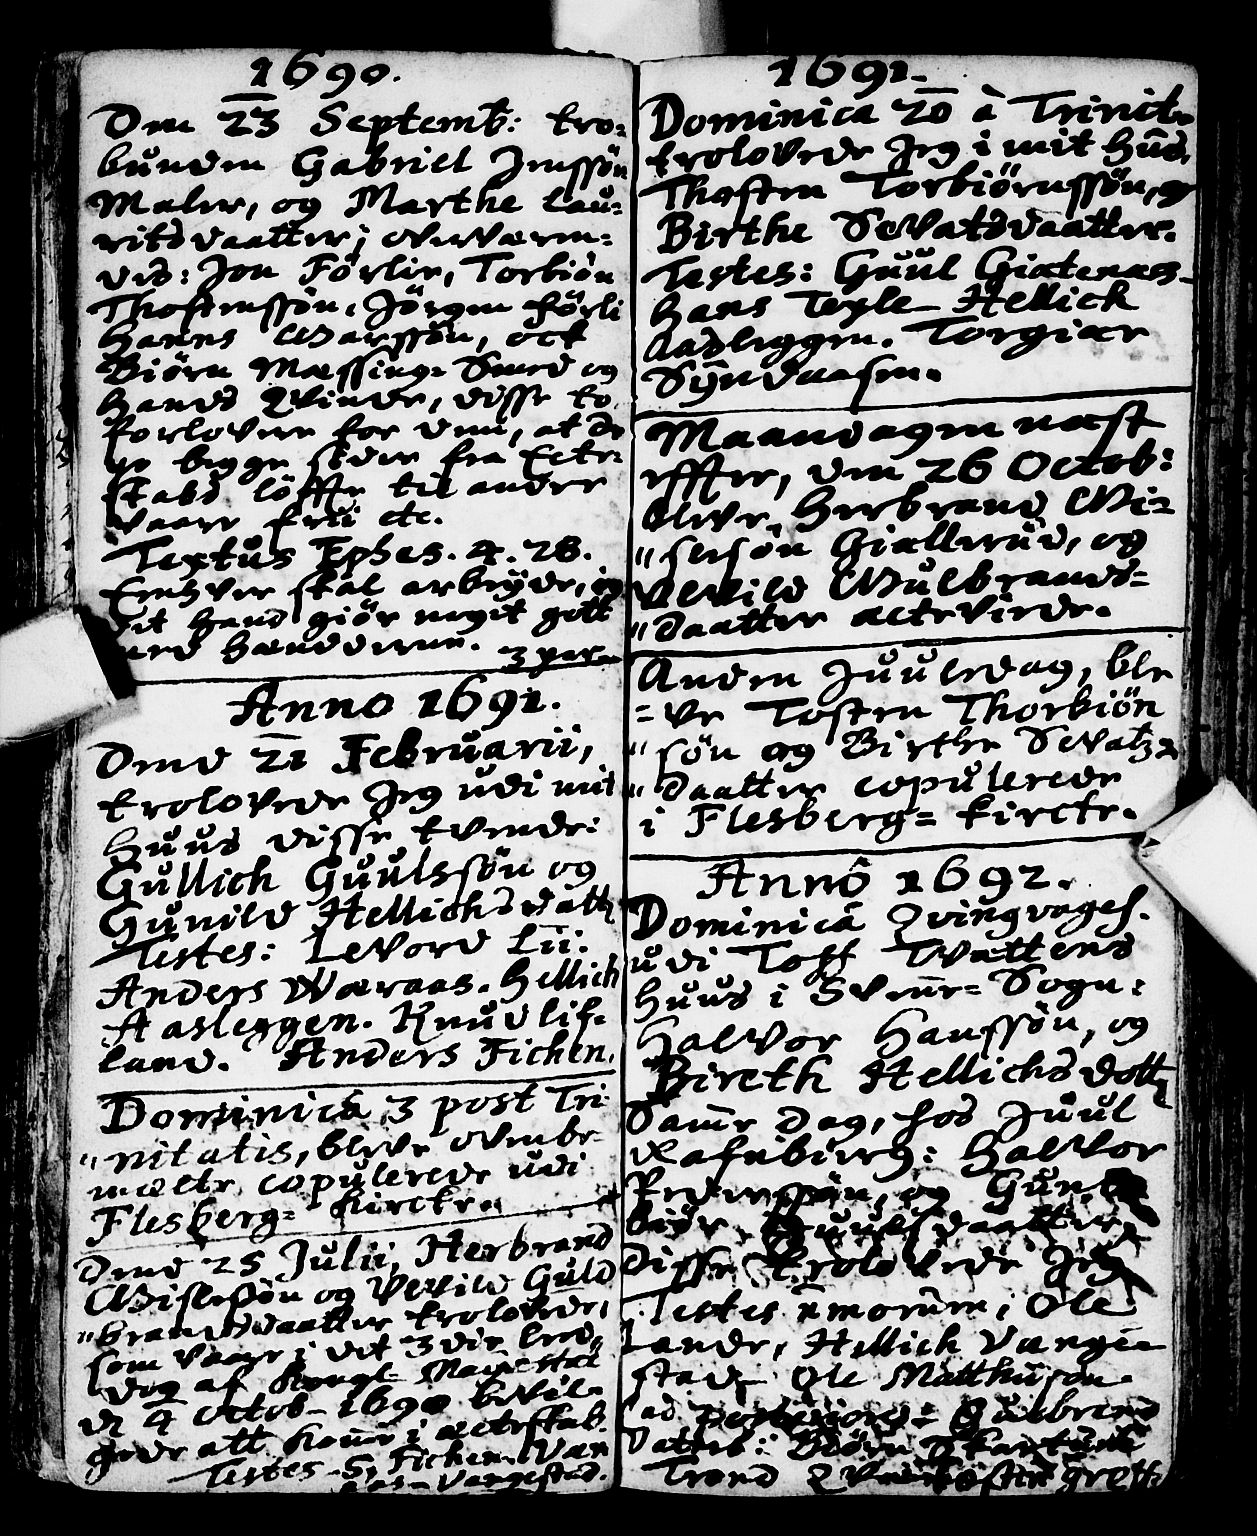 1690.
Den 23 Septemb: tro-
bunden Gabriel Jenssön
Maler, og Marthe Lau-
ritsdaatter; overværen-
des: Jon Förlie, Torbiön
Thostenssön, Jörgen Förli
Hanns Marssön, ock
Biörn Messing-Smed og
hands Qvinde, disse to
forlovere for dem, at de
er begge stder fra Ecte-
skabs löffte til andre
vaare frii etc.
Textus Ephes. 4. 28.
Enhver skal arbeyde, og
det hand giör noget gott
med hænderne.
Anno 1691.
Dend 21 Februarii,
trolovede Jeg udi mit
Huus disse tvende:
Gullich Guulssön og
Gunild Hellichsdatt
Testes: Levord Lii.
Anders Wæraas. Hellich
Aasleggen. Knud Lif-
land. Anders Fichen.
Dominica 3 post Tri-
"nitatis, bleve ovenbe-
mælte copulerede udi
Flesberg= Kircke.
Dend 25 Julii, Herbrand
og Vevild Guld
"brandsdaatter trolovede,
som vaare i det 3die leed,
dog af Kongl. Mayestæt
d 4 Octob. 1690 bevil-
gede att komme i ecteskab.
Testes. S. Fichen.
Vangestad.
1691.
Dominica 20 à Trinit.
trolovede Jeg i mit Huus,
Thosten Torbiörnssön, og
Birthe Sevatsdaatter.
Testes: Guul Giætenaas
Hans Teyle Hellick
Aadleggen. Torgier
Synduasen.
Maandagen næst
effter, den 26 Octob:
bleve Herbrand Mi-
"sersön Giallerud, og
Vevild Gulbrands=
"daatter ectevirde.
Anden Juuledag, ble
=ve Tosten Thorbiön
"sön og Birthe Sevatz-
"daatter copulerede
i Flesberg= Kircke.
Anno 1692.
Dominica Qvinqvages.
udi Toff Tvættens
huus i Svene= Sogn:
Halvor Hanssön, og
Bireth Hellichsdott
Samme dag, hos Juul
Halvor
Pederssön, og Gun-
biör Guulsdaatter,
disse trolovede Jeg
Testes Ole
Lande, Hellich Vange
stad, Ole Matthisøn
Gulbrand
Biörn
Trond